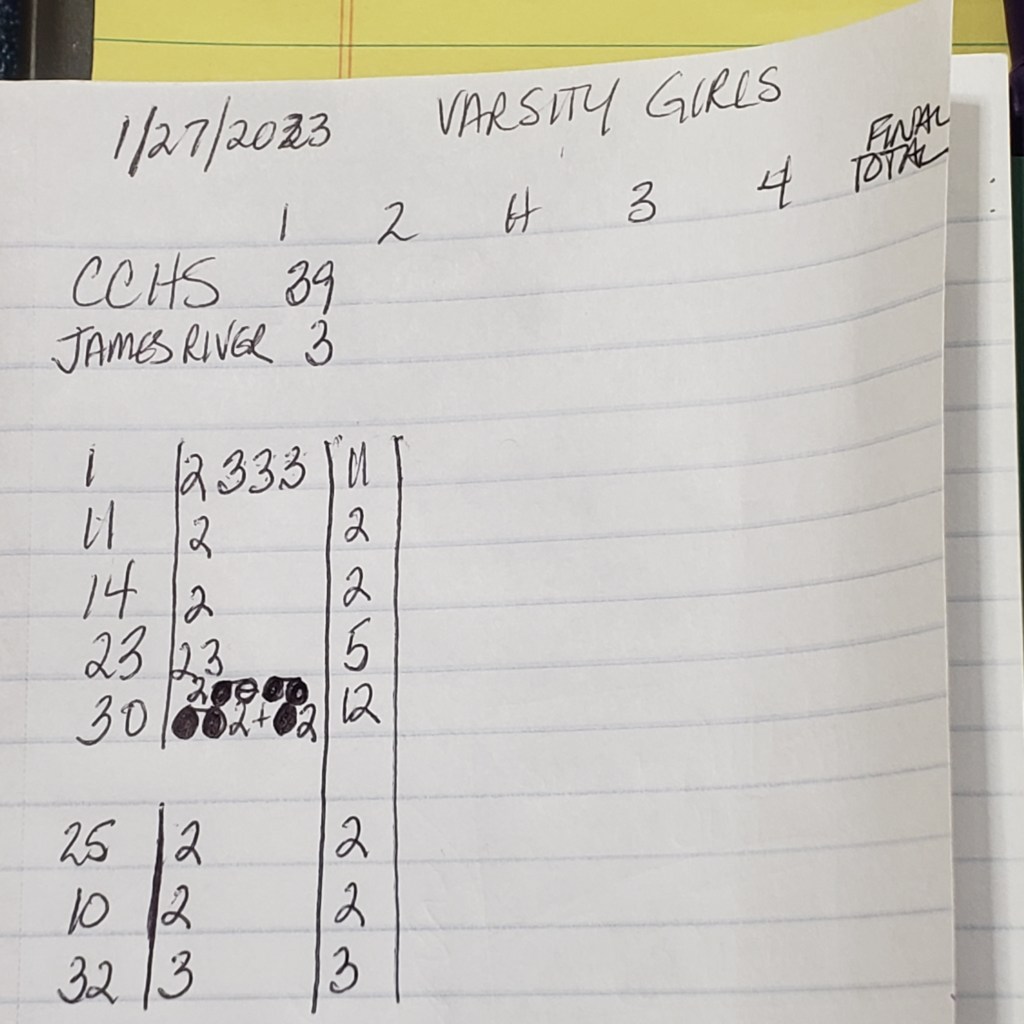 1/27/2023 VARSITY GIRLS
1 2 H 3 4 FINAL TOTAL
CCHS 39
JAMES RIVER 3
1 2 3 3 3 11
11 2 2
14 2 2
23 2 3 5
2
30 2 + 2 12
25 2 2
10 2 2
32 3 3